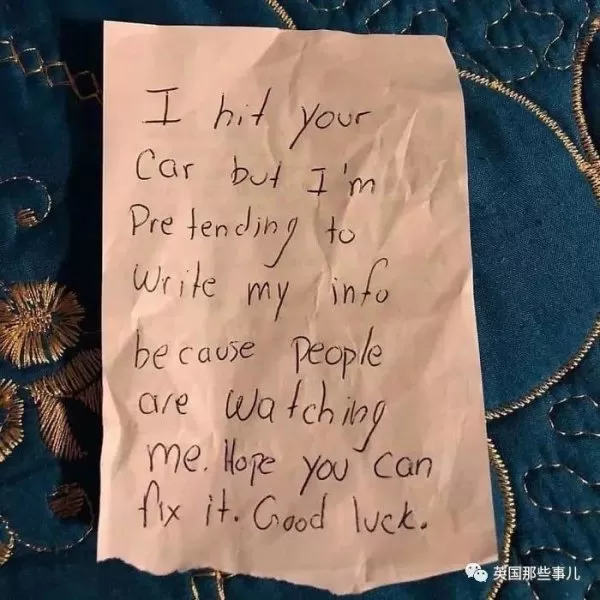 I hit your
car but I'm
Pretending to
write my info
because people
are watching
me. Hope you can
fix it. Good luck.
英国那些事儿